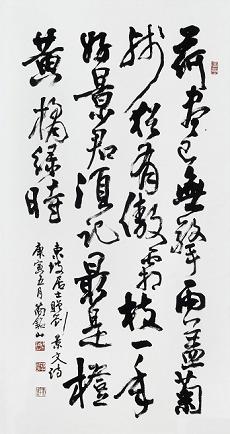 荷盡已無擎雨盖菊
残猶有傲霜枝一年
好景君須记最是橙
黄橘绿時
東坡居士赠刘景文诗
庚寅五月